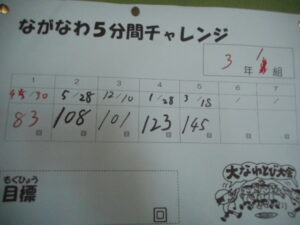 ながなわ5分間チャレンジ
3年1組
1 2 3 4 5 6 7
5/28 12/10 1/28 3/18 / /
83回 108回 101回 123回 145回 回 回
もくひょう
目標
回
大なわとび大会